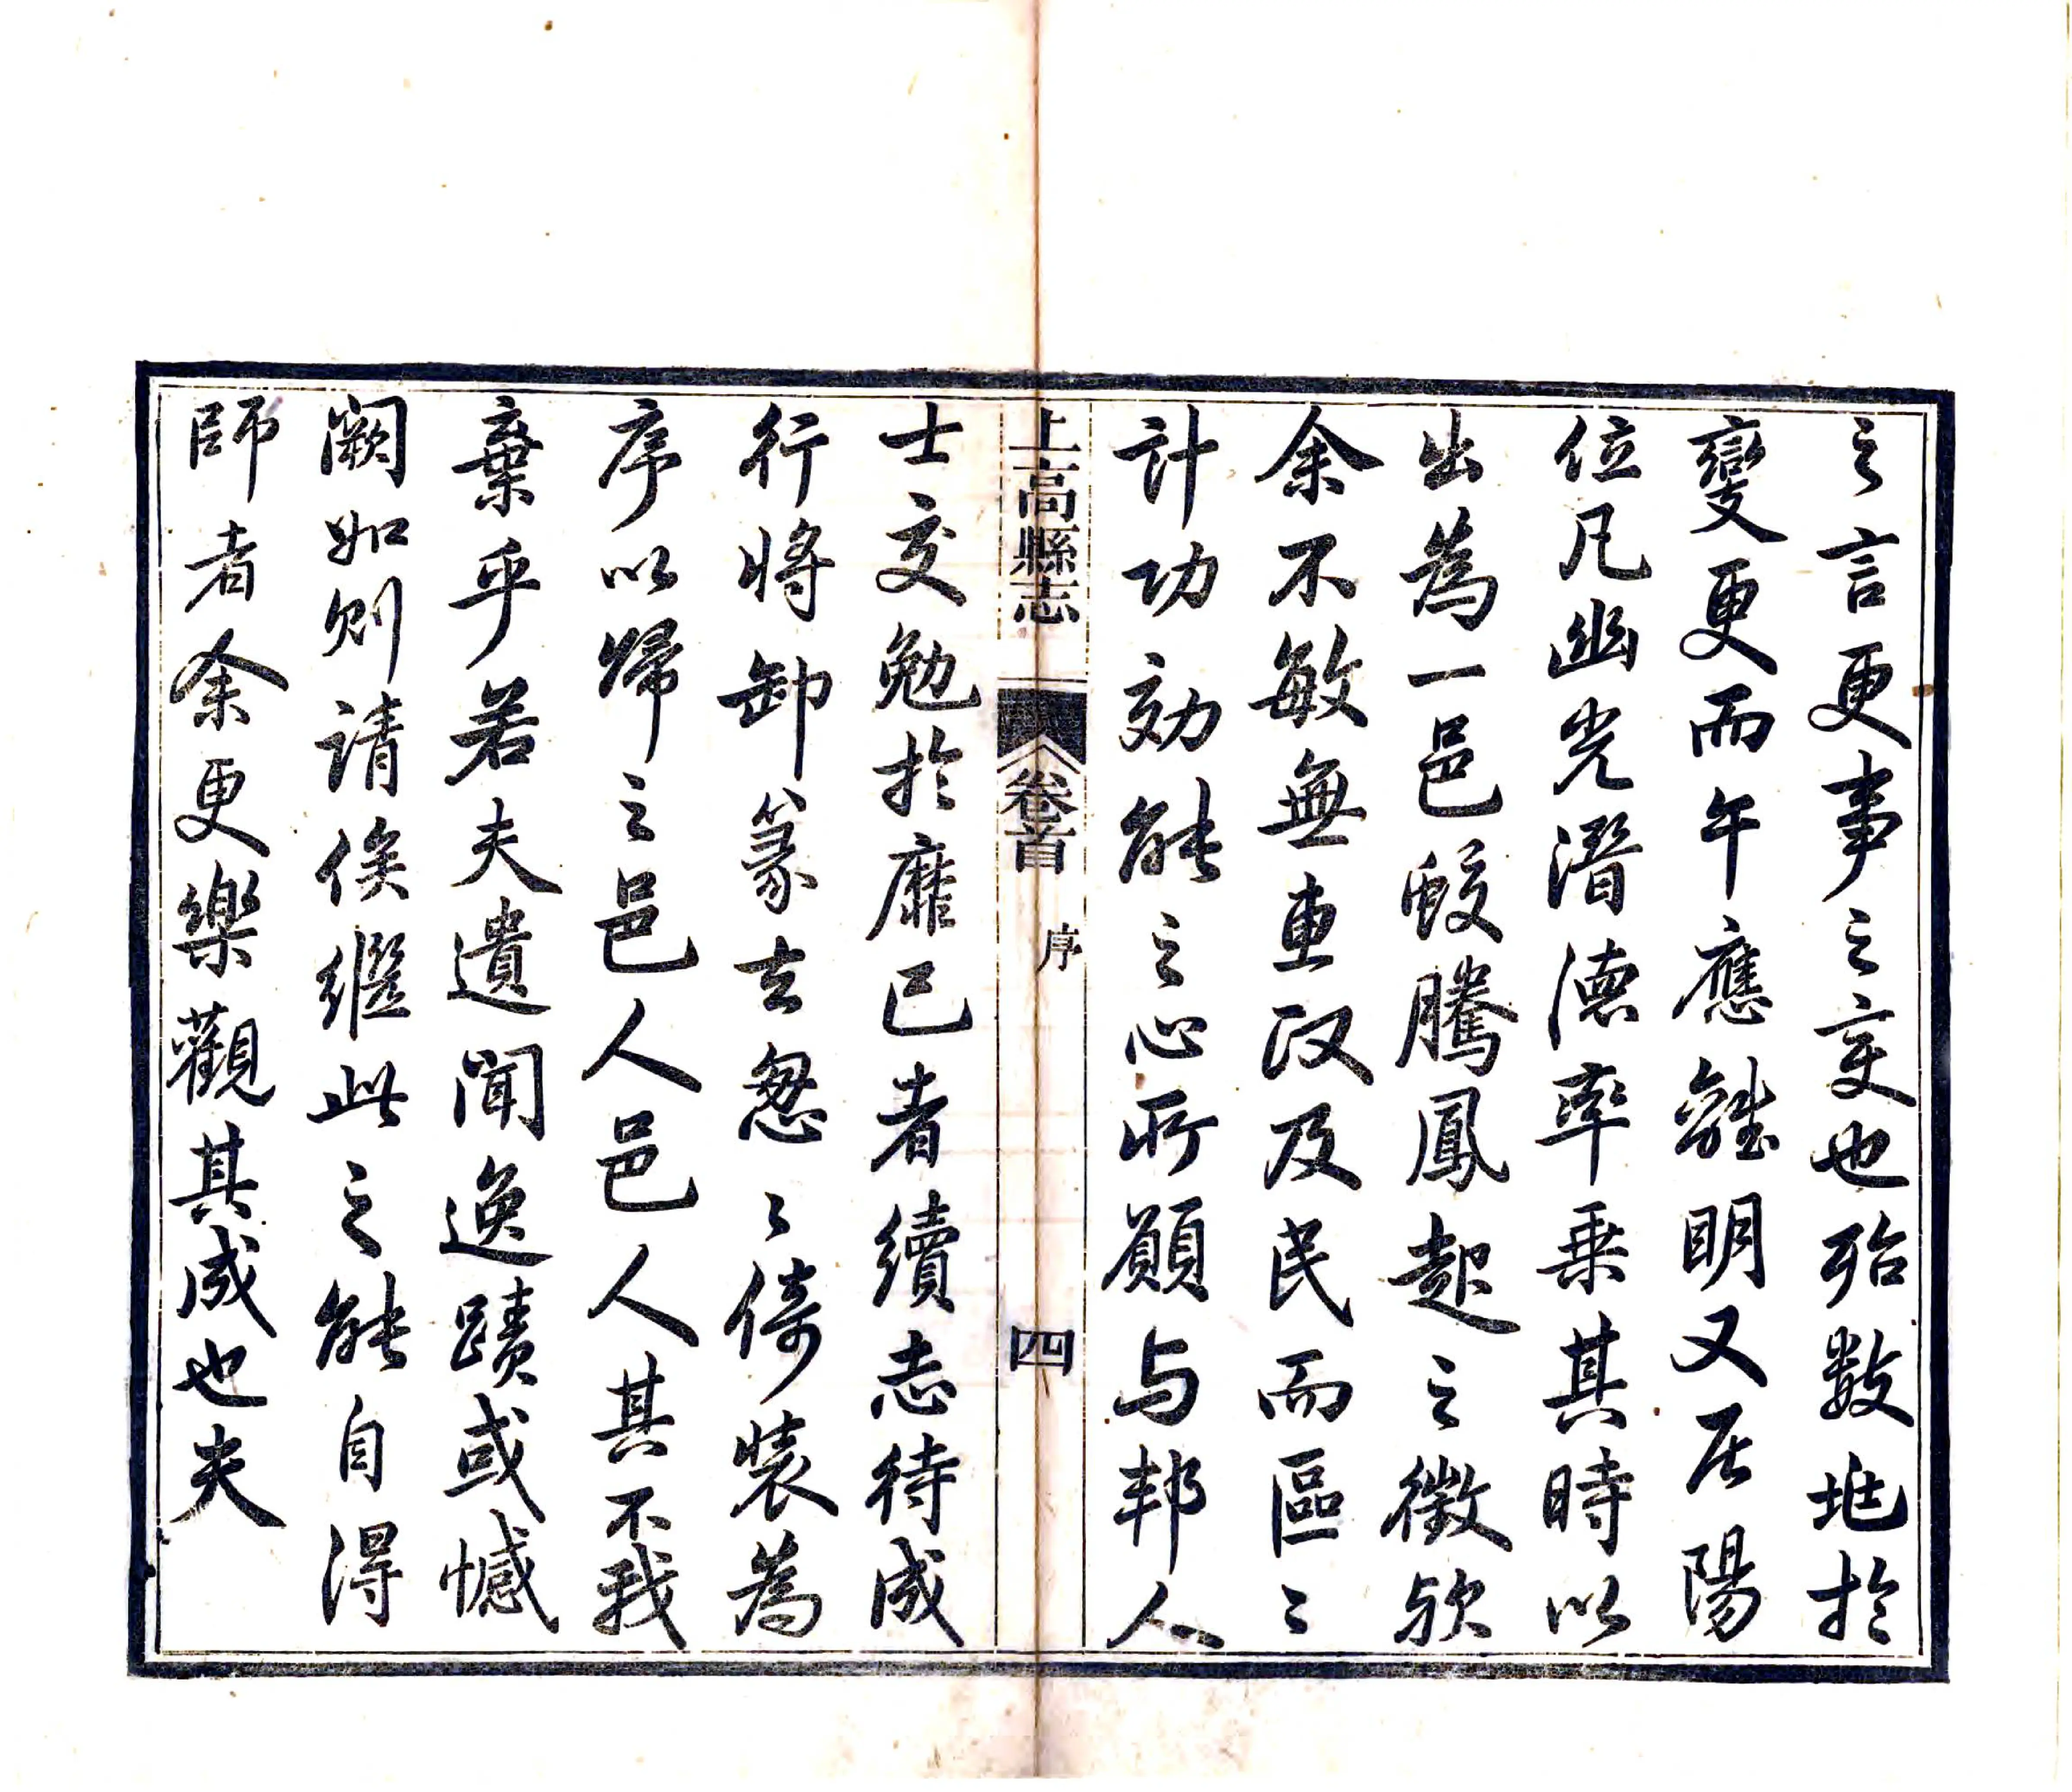 之言更事之变也殆數兆於
變更而午應離明又居陽
位凡幽光潛德率乗其時以
出為一邑蛟騰鳳起之徵欤
余不敏無惠政及民而區〻
計功効能之心所願与邦人
上高縣志 卷首 序 四
士交勉於靡已者續志待成
行將卸篆去怱〻倚裝為
序以歸之邑人邑人其不我
棄乎若夫遺聞逸蹟或憾
闕如則請俟繼此之能自得
師者余更樂觀其成也夫